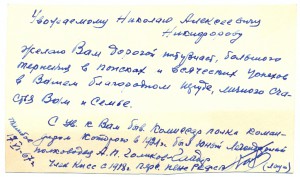 Уважаемому Николаю Алексеевичу
Никифорову
Желаю Вам дорогой энтузиаст, большого
терпения в поисках и всяческих успехов
в Вашем благородном труде, личного Сча-
стья Вам и Семье.
С ув к Вам быв Комиссар полка коман-
диром которого в 1921 г. был юный легендарный
полководец А. П. Голиков-Гайдар
Член КПСС с 1918 г.